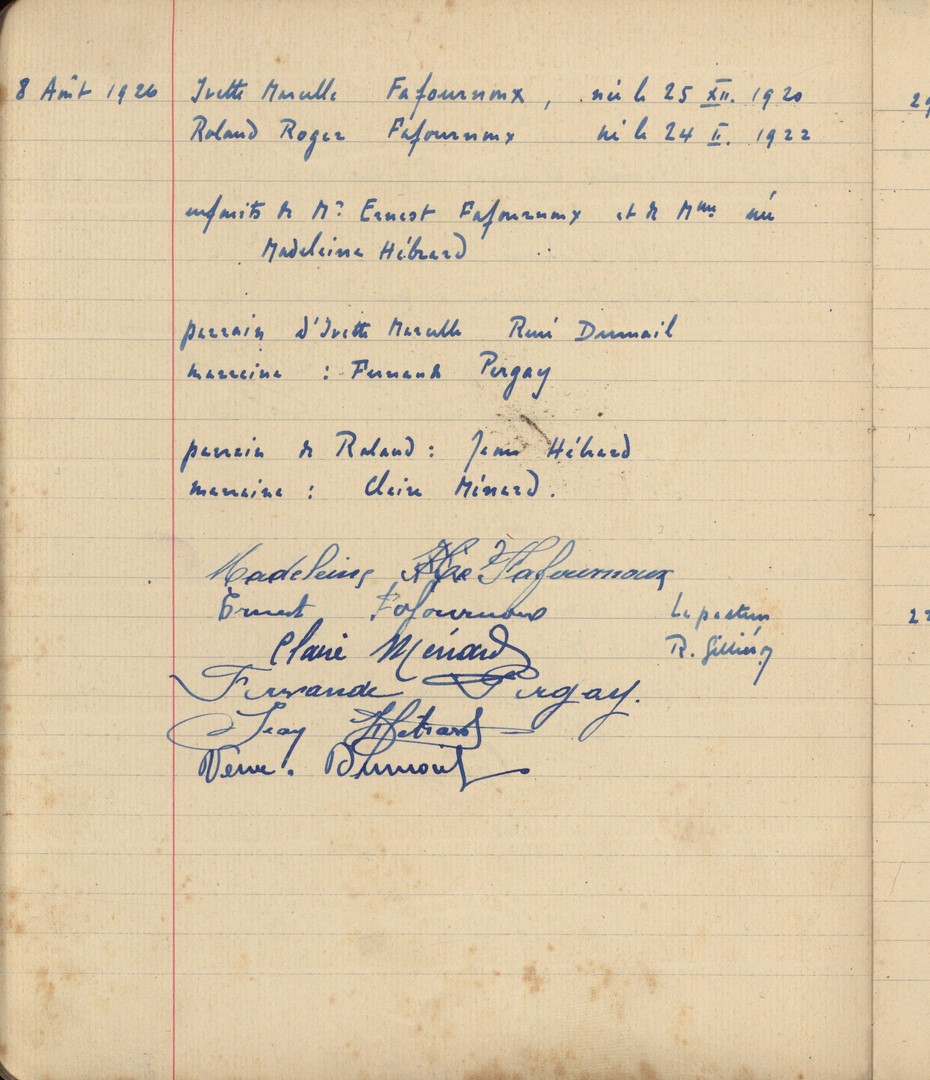 8 Août 1926 Ivette Marcelle Fafournoux, née le 25 XII. 1920
Roland Roger Fafournoux né le 24 II. 1922
enfants de Mr Ernest Fafournoux et de Mme née
Madeleine Hébrard
parrain d'Ivette Marcelle René Dumail
marraine : Fernande Pergay
parrain de Roland : Jean Hébrard
marraine : Claire Ménard.
Madeleine Fafournoux
Ernest Fafournoux Le pasteur
Claire Ménard R. Gilliéron
Fernande Pergay.
Jean Hébrard